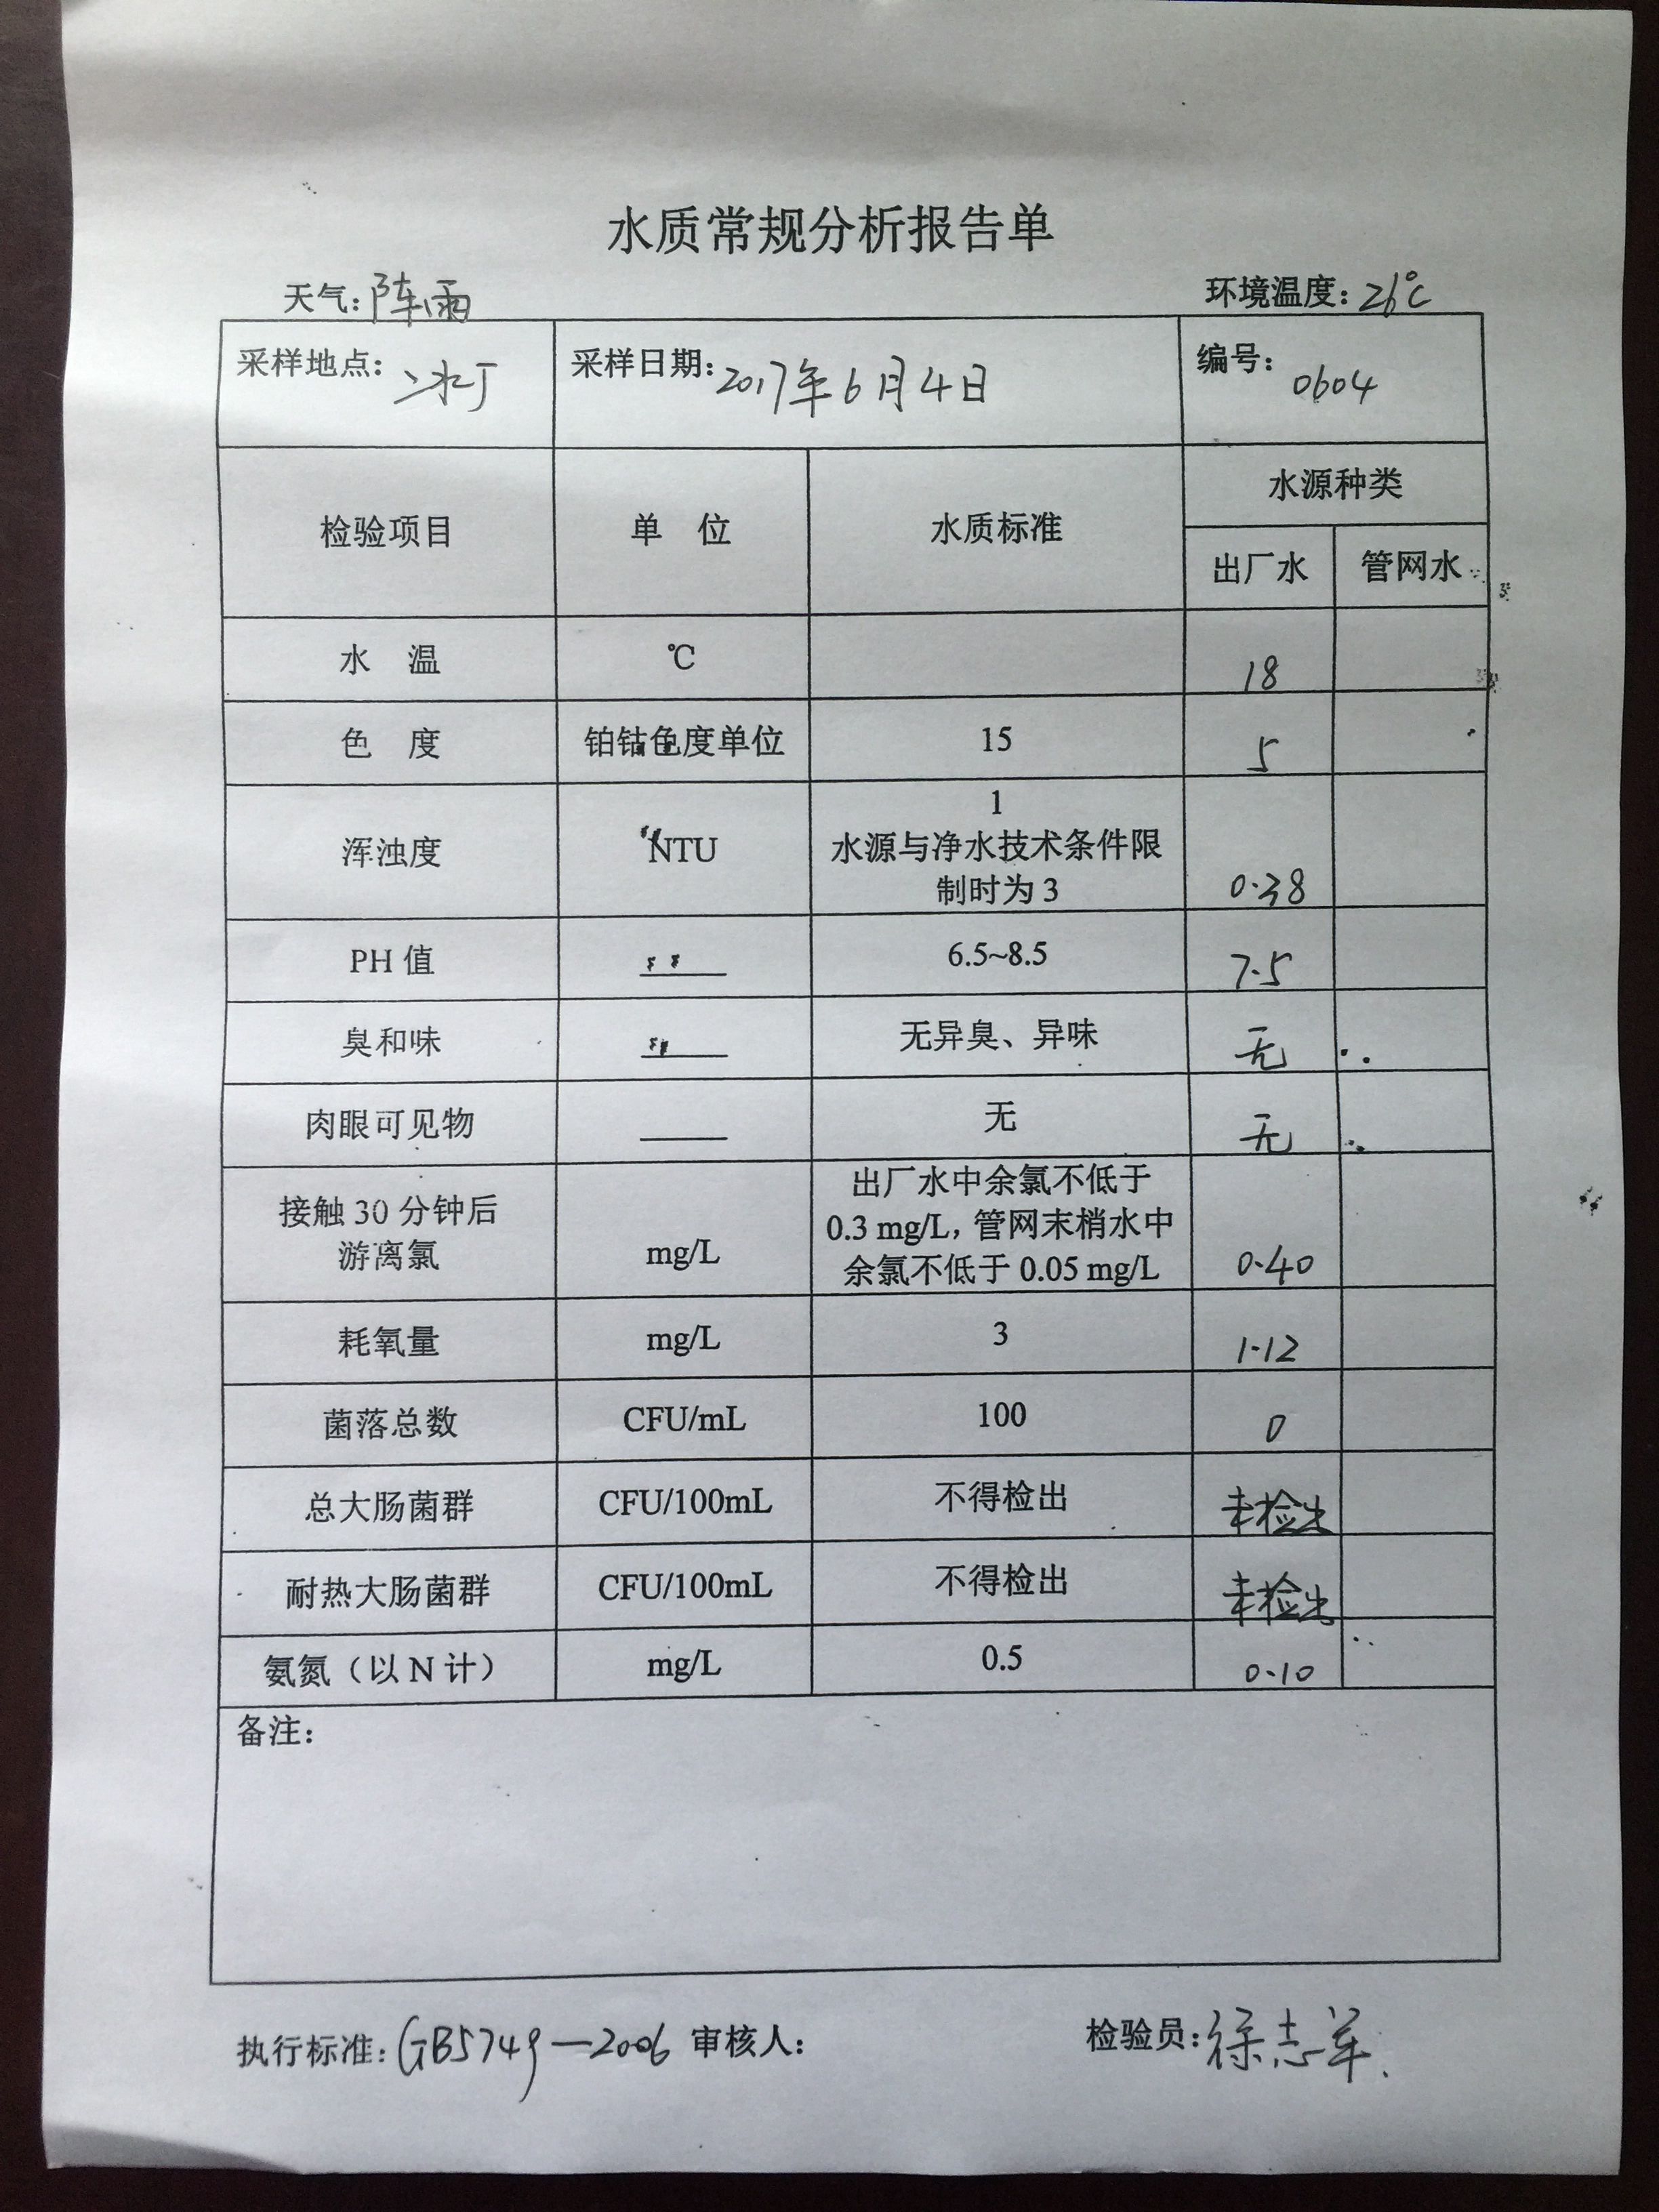 水质常规分析报告单
天气：阵雨 环境温度：26℃
采样地点： 采样日期：2017年6月4日 编号：0604
检验项目 单 位 水质标准 水源种类
出厂水 管网水
水 温 ℃ 18
色 度 铂钴色度单位 15 5
浑浊度 NTU 1
水源与净水技术条件限
制时为 3 0.38
PH 值 —— 6.5~8.5 7.5
臭和味 —— 无异臭、异味 无
肉眼可见物 —— 无 无
接触 30 分钟后
游离氯 mg/L 出厂水中余氯不低于
0.3 mg/L，管网末梢水中
余氯不低于 0.05 mg/L 0.40
耗氧量 mg/L 3 1.12
菌落总数 CFU/mL 100 0
总大肠菌群 CFU/100mL 不得检出 未检出
耐热大肠菌群 CFU/100mL 不得检出 未检出
氨氮（以 N 计） mg/L 0.5 0.10
备注：
执行标准：GB5749—2006 审核人： 检验员：徐志军